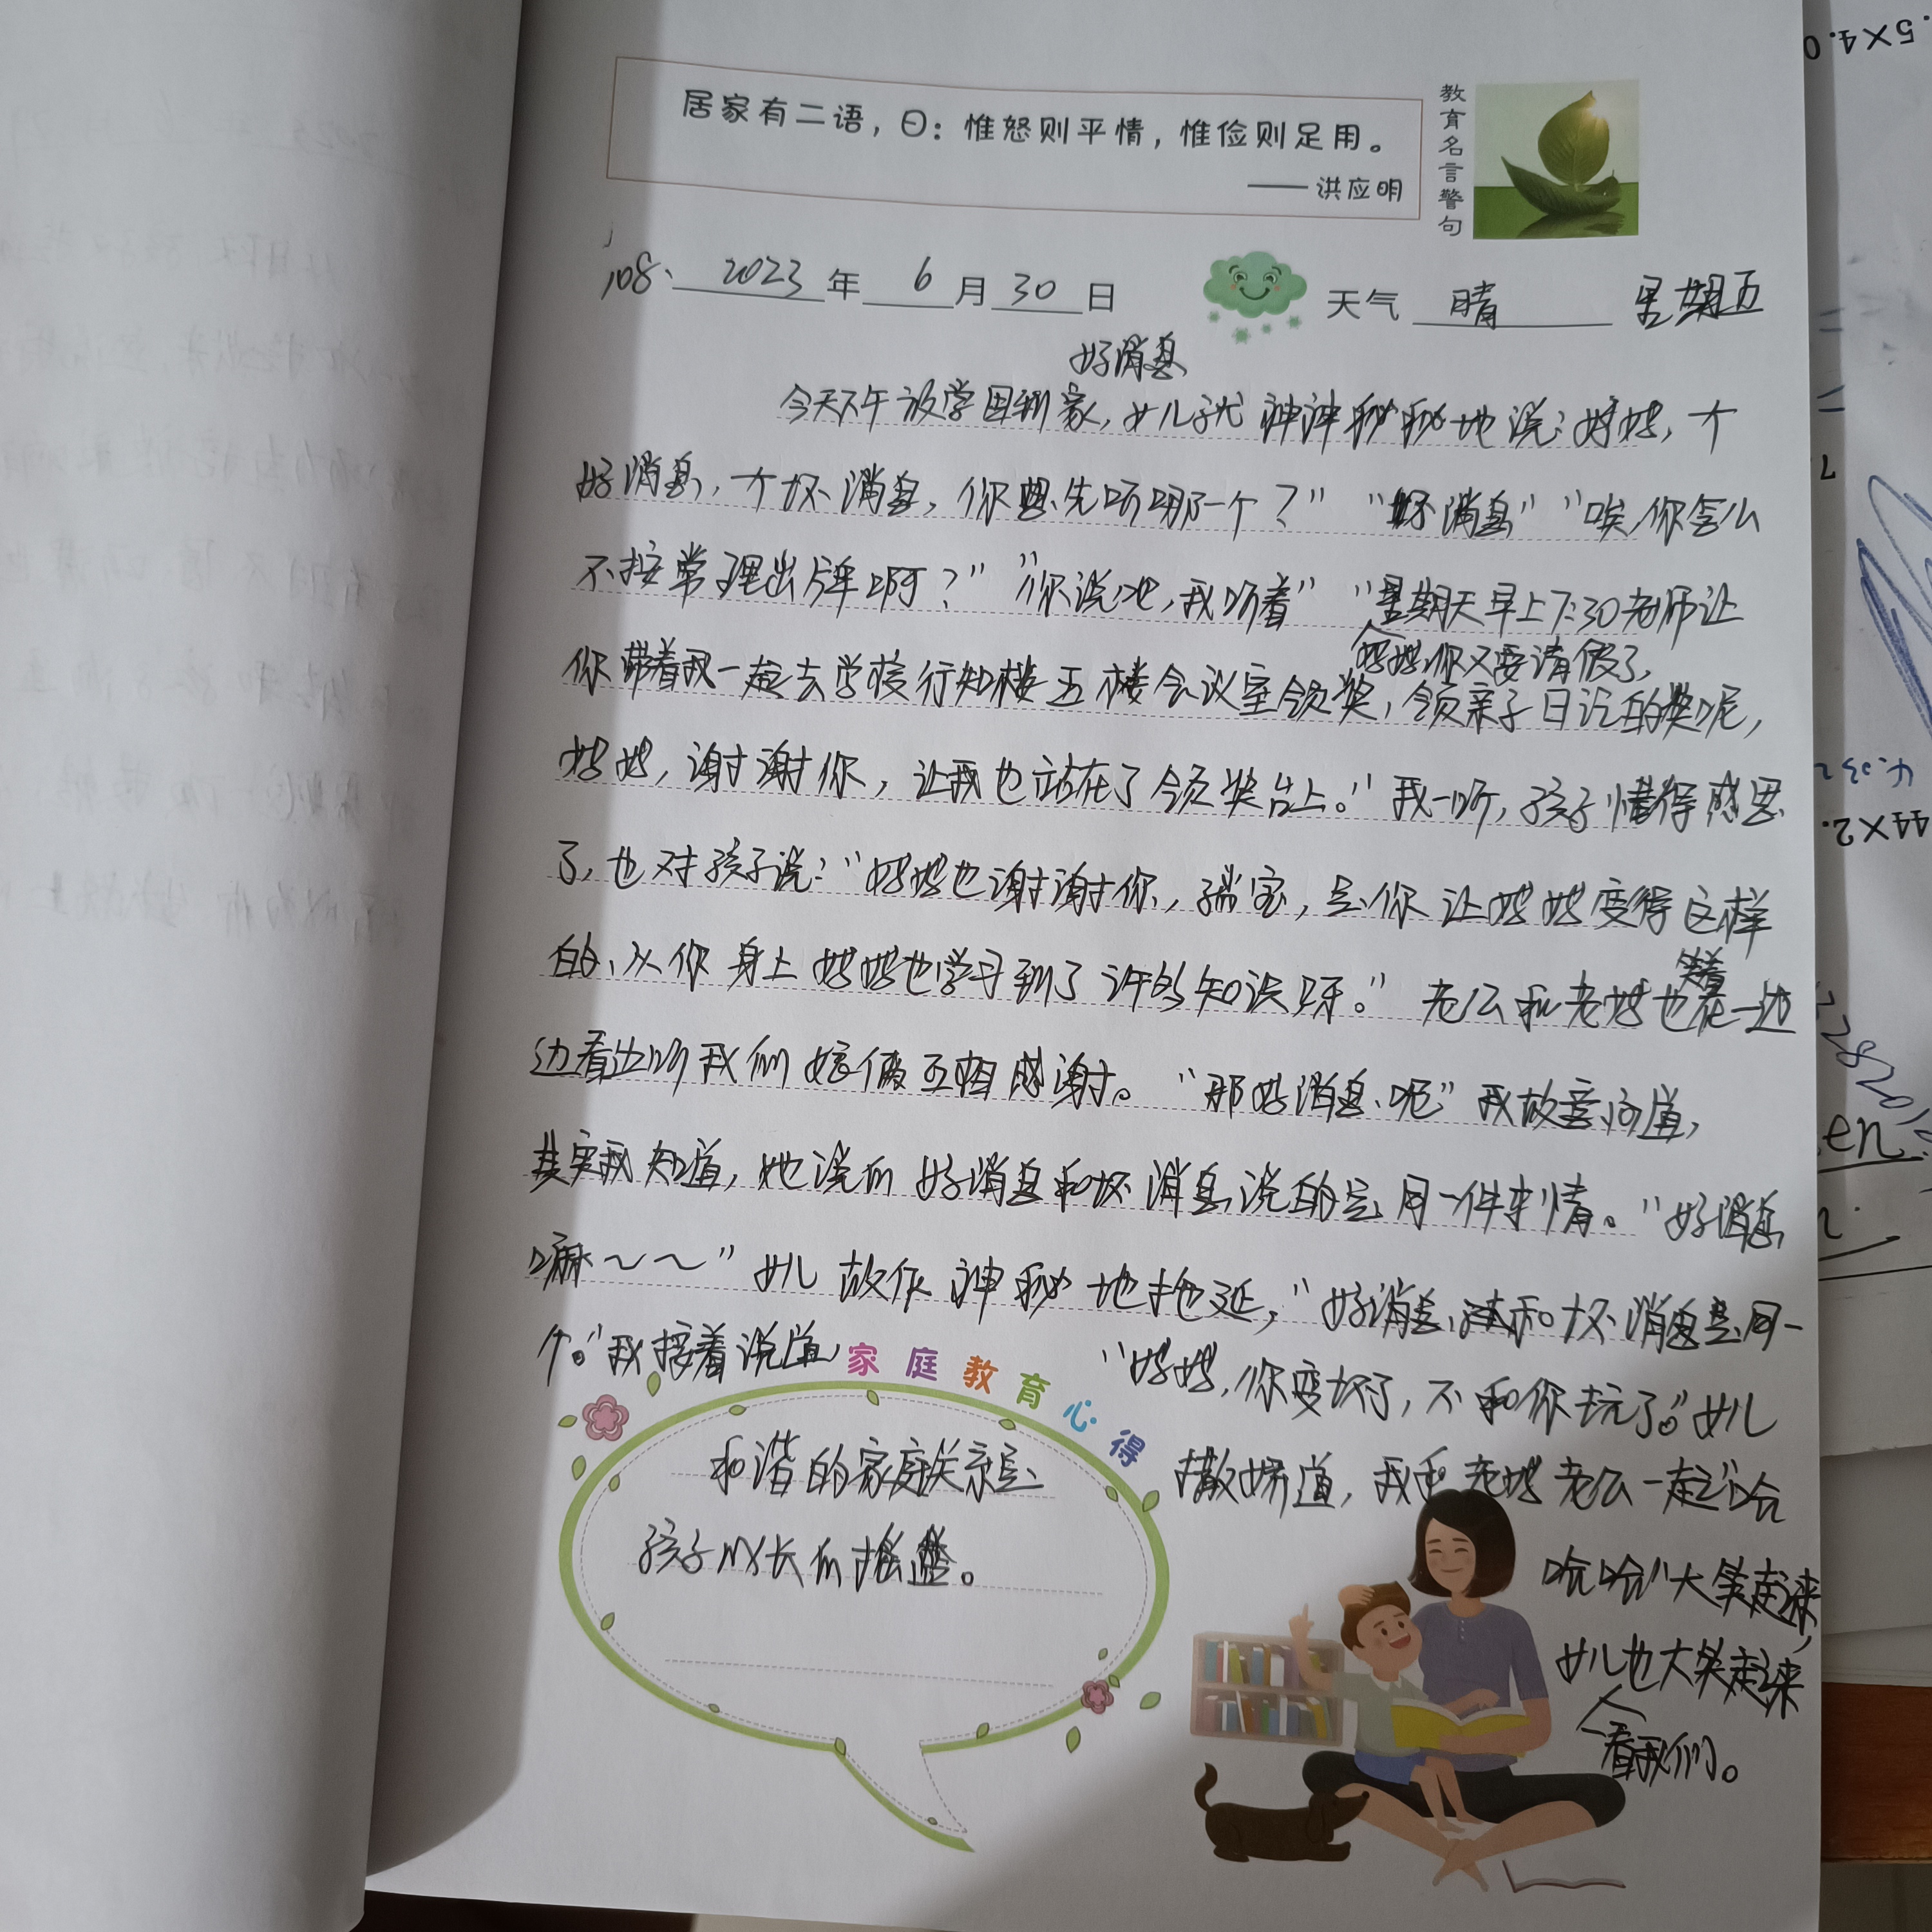 居家有二语，曰：惟恕则平情，惟俭则足用。
——洪应明
教育名言警句
108、2023年6月30日 天气 晴 星期五
好消息
今天下午放学回到家，女儿就神神秘秘地说：妈妈，一个
好消息，一个坏消息，你想先听哪一个？”“坏消息”“唉，你怎么
不按常理出牌啊？”“你说吧，我听着”“星期天早上7:30老师让
妈妈你又要请假了，
你带着我一起去学校行知楼五楼会议室领奖，领亲子日记的奖呢，
妈妈，谢谢你，让我也站在了领奖台上。”我一听，孩子懂得感恩
了，也对孩子说：“妈妈也谢谢你，瑞宝，是你让妈妈变得这样
的、从你身上妈妈也学习到了许多知识呀。”老公和老妈也笑着在一边
边看边听我们娘俩互相感谢。“那好消息呢”我故意问道，
其实我知道，她说的好消息和坏消息说的是同一件事情。“好消息
嘛～～”女儿故作神秘地拖延，“好消息和坏消息是同一
个。”我接着说道，“妈妈，你变坏了，不和你玩了。”女儿
撒娇道，我和老妈老公一起“哈
哈哈”大笑起来，
女儿也大笑起来
看我们。
家庭教育心得
和谐的家庭关系是
孩子成长的摇篮。
5×4.0
44×2.
en